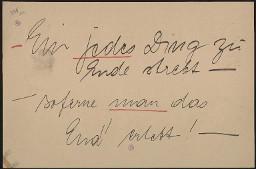 — Ein jedes Ding zu
Ende strebt —
— soferne man das
End' erlebt! —